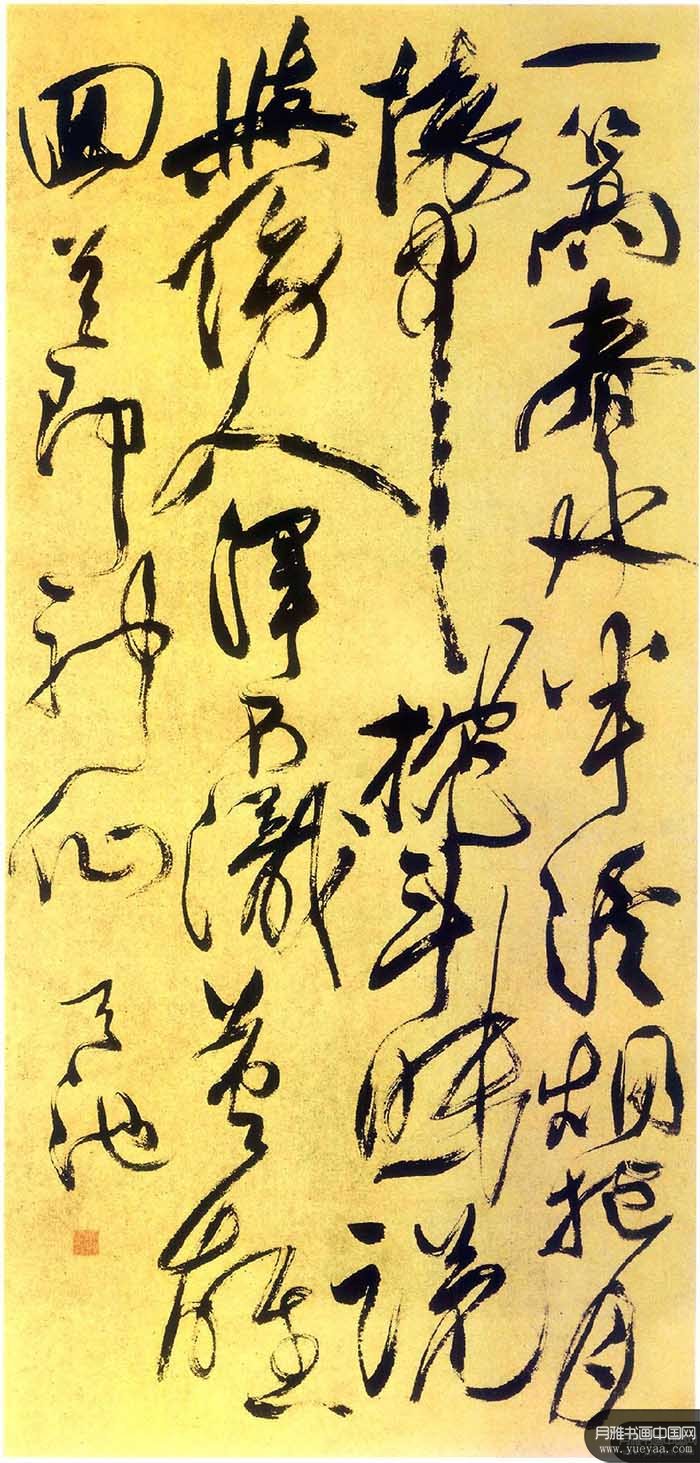 一篙春水半溪烟抱月
懷中枕斗眠說
與傍人渾不識英雄
回首即神仙
天池
月雅书画中国网
www.yueyaa.com